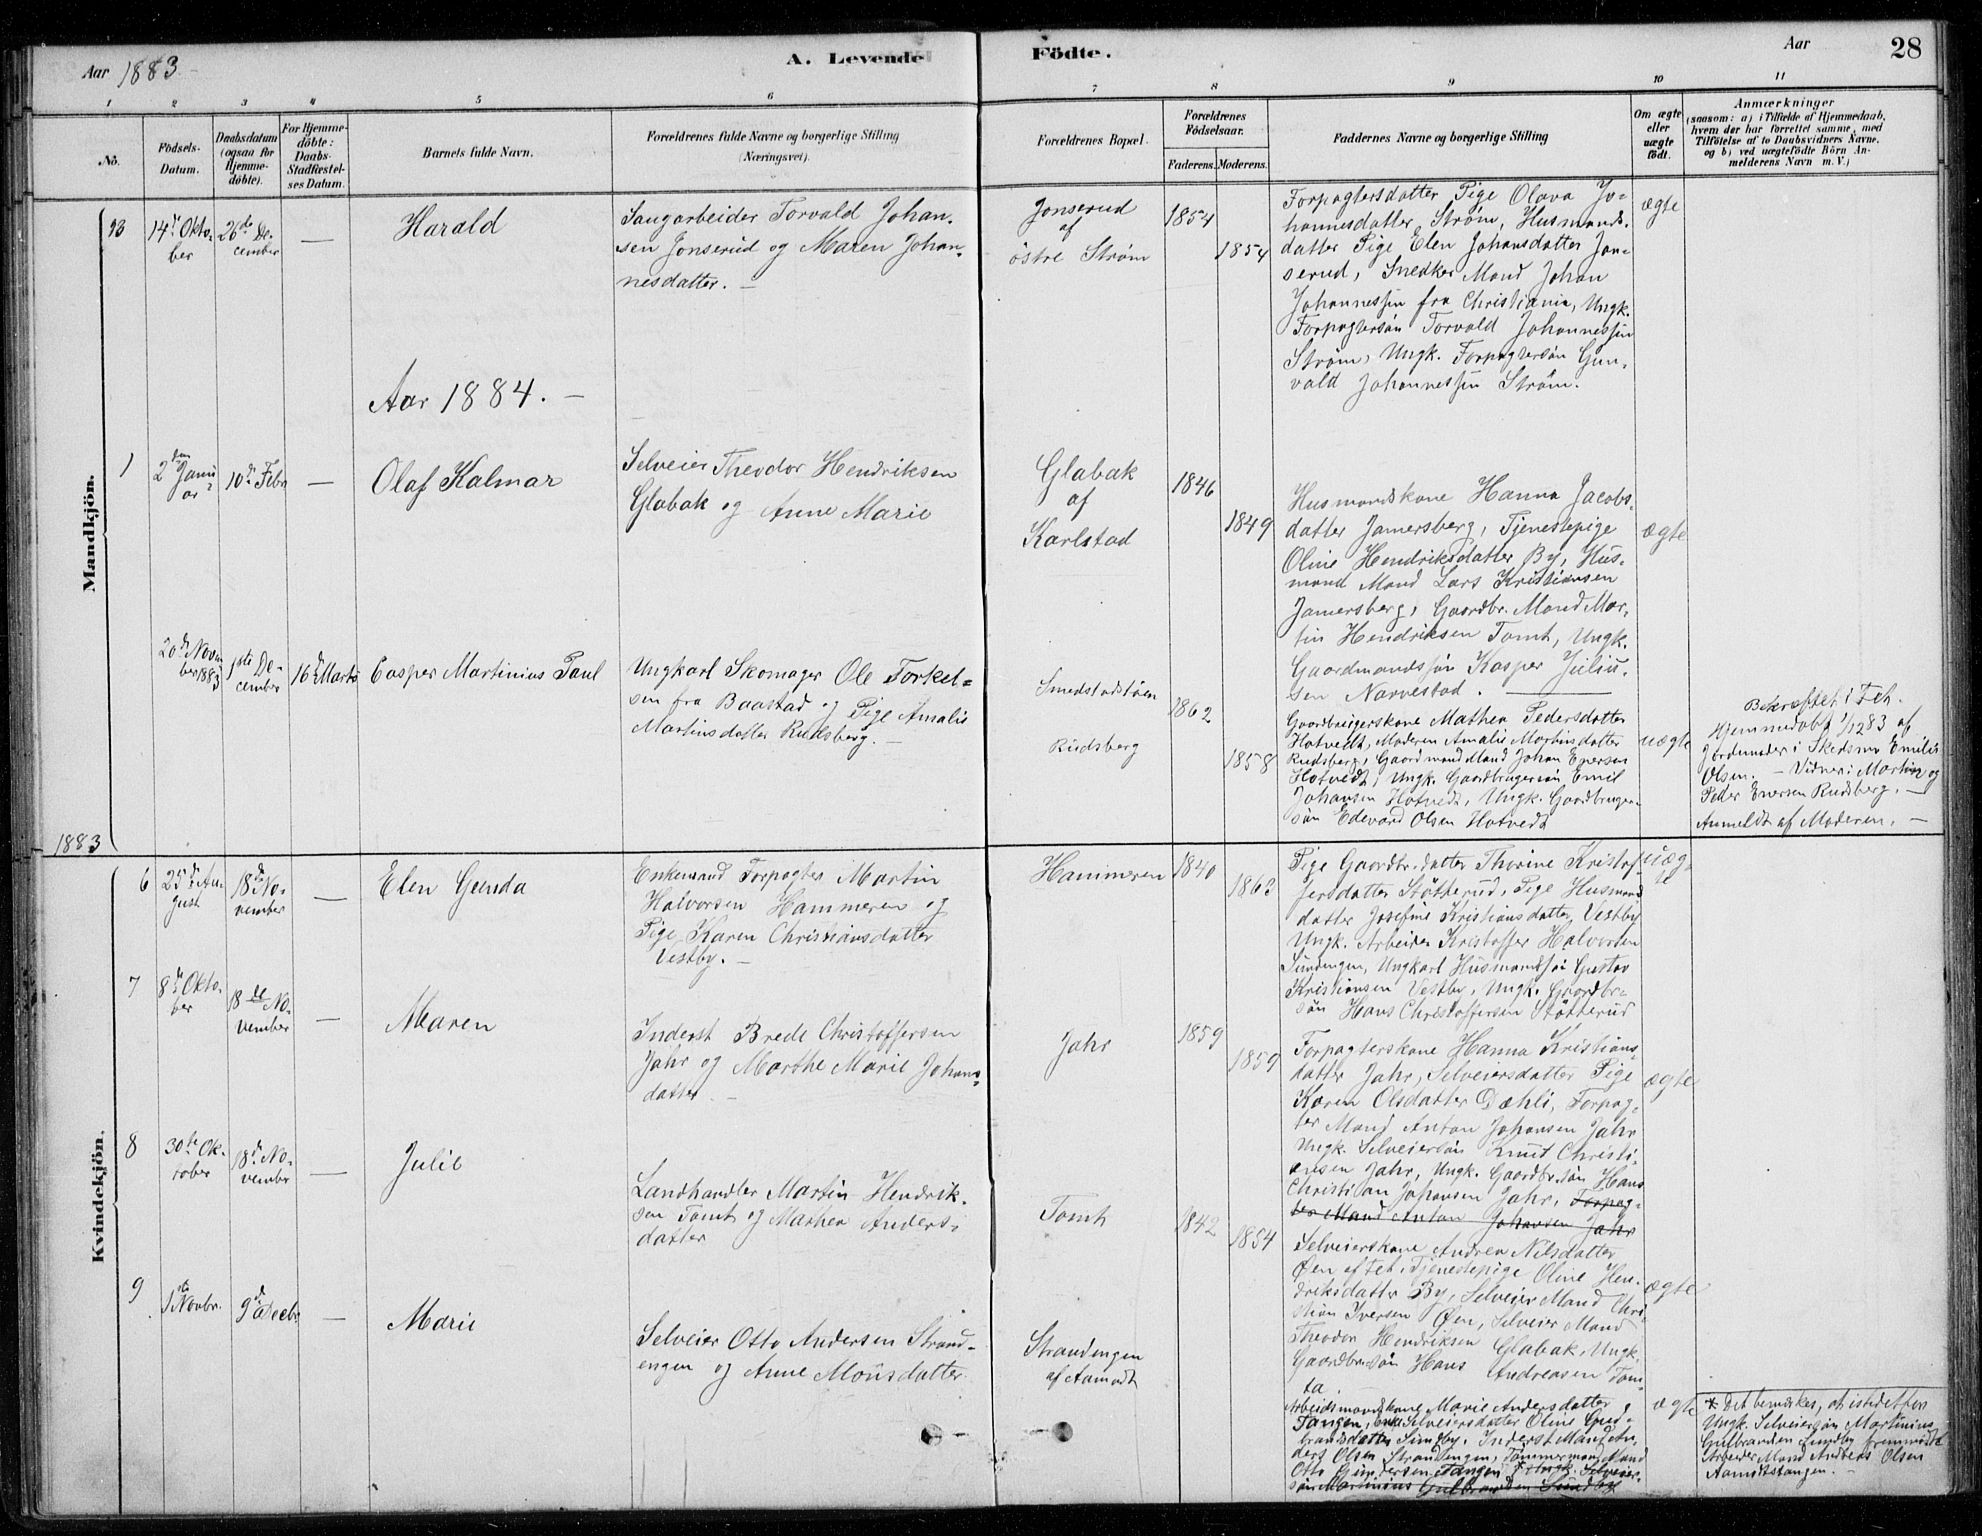 Aar 1883
A. Levende Födte.
Aar
28
1
2
3
4
5
6
7
8
9
10
11
No.
Födsels-
Datum.
Daabsdatum
(ogsaa for
Hjemme-
döbte).
For Hjemme-
döbte:
Daabs-
Stadfæstel-
ses Datum.
Barnets fulde Navn.
Forældrenes fulde Navne og borgerlige Stilling
(Næringsvei).
Forældrenes Bopæl.
Forældrenes
Födselsaar.
Faderens.
Moderens.
Faddernes Navne og borgerlige Stilling
Om ægte
eller
uægte
födt.
Anmærkninger
(saasom: a) i Tilfælde af Hjemmedaab,
hvem der har forrettet samme, med
Tilföielse af to Daabsvidners Navne,
og b) ved uægtefödte Börn An-
melderens Navn m. V.)
Mandkjön.
13
14de Okto-
ber
26de De-
cember
—
Harald
Saugarbeider Torvald Johan-
sen Jonserud og Maren Johan-
nesdatter. —
Jonserud
af
östre Strøm
1854
1854
Forpagtersdatter Pige Olava Jo-
hannesdatter Strøm, Husmands-
datter Pige Elen Johansdatter Jon-
serud, Snedker Mand Johan
Johannessen fra Christiania, Ungk.
Forpagtersön Torvald Johannessen
Strøm, Ungk. Forpagtersön Gun-
vald Johannessen Strøm.
ægte
Aar 1884. —
1
2den Janu-
ar
10de Febr
—
Olaf Kalmar
Selveier Theodor Hendriksen
Glabak og Anne Marie
Glabak
af
Karlstad
1846
1849
Husmandskone Hanna Jacobs-
datter Jamersberg, Tjenestepige
Oline Hendriksdatter By, Hus-
mand Mand Lars Kristiansen
Jamersberg, Gaardbr. Mand Mar-
tin Hendriksen Tomt, Ungk.
Gaardmandssön Kasper Juliu-
sen Narvestad.
ægte
20de Novem-
ber 1883
1ste De-
cember
16de Marts
Casper Martinius Paul
Ungkarl Skomager Ole Torkel-
sen fra Baastad og Pige Amalie
Martinsdatter Rudsberg. —
Smedstadtöen
Rudsberg
1862
1858
Gaardbrugerskone Mathea Pedersdatter
Hotvedt, Moderen Amalie Martinsdatter
Rudsberg, Gaardmand Mand Johan Enersen
Hotvedt, Ungk. Gaardbrugersön Emil
Johansen Hotvedt, Ungk. Gaardbruger-
sön Edevard Olsen Hotvedt
uægte
Bekræftet i Feh.
Hjemmedöbt 1/12 83 af
Jordmoder i Skedsmo Emilie
Olsen. — Vidner: Martin og
Peder Enersen Rudsberg. —
Anmeldt af Moderen. —
1883
Kvindekjön.
6
25de Au-
gust
18de No-
vember
—
Elen Gunda
Enkemand Forpagter Martin
Halvorsen Hammeren og
Pige Karen Christiansdatter
Vestby. —
Hammeren
1840
1863
Pige Gaardbr.datter Thorine Kristof-
fersdatter Stötterud, Pige Husmand
datter Josefine Kristiansdatter Vestby
Ungk. Arbeider Kristoffer Halvorsen
Sundengen, Ungkarl Husmandssön Gustav
Kristiansen Vestby, Ungk. Gaardbr-
sön Hans Christoffersen Stötterud
uæg-
te
7
8de Okto-
ber
18de No-
vember
—
Maren
Inderst Brede Christoffersen
Jahr og Marthe Marie Johans-
datter. —
Jahr
1859
1859
Forpagterskone Hanna Kristians-
datter Jahr, Selveiersdatter Pige
Karen Olsdatter Dæhli, Forpag-
ter Mand Anton Johansen Jahr
Ungk. Selveiersön Knut Christi-
ansen Jahr, Ungk. Gaardbr.sön Hans
Christian Johansen Jahr, Forpag-
ter Mand Anton Johansen Jahr
ægte
8
30te Ok-
tober
18de No-
vember
—
Julie
Landhandler Martin Hendrik-
sen Tomt og Mathea Anders-
datter
Tomt
1842
1854
Selveierskone Andrea Nilsdatter
Øen af Fet, Tjenestepige Oline Hen-
driksdatter By, Selveier Mand Chri-
stian Iversen Øen, Selveier Mand
Theodor Hendriksen Glabak, Ungk.
Gaardbr.sön Hans Andreasen Tom-
ta.
ægte
9
1ste Novbr.
9de Decbr
—
Marie
Selveier Otto Andersen Strand-
engen og Anne Mönsdatter
Strandengen
af Aamodt
Arbeidsmandskone Marie Andersdatter
Tangen, Enke Selveiersdatter Oline Gud-
brandsdatter Sundby, Inderst Mand An-
ders Olsen Strandengen, Tömmermand Mand
Otto Gundersen Tangen, * Ungk. Selveier-
sön Martinius Gulbrandsen Sundby
ægte
* Det bemærkes, at istedetfor
Ungk. Selveiersön Martinius
Gulbrandsen Sundby fremmödte
Arbeider Mand Andreas Olsen
Aamodtstangen. —